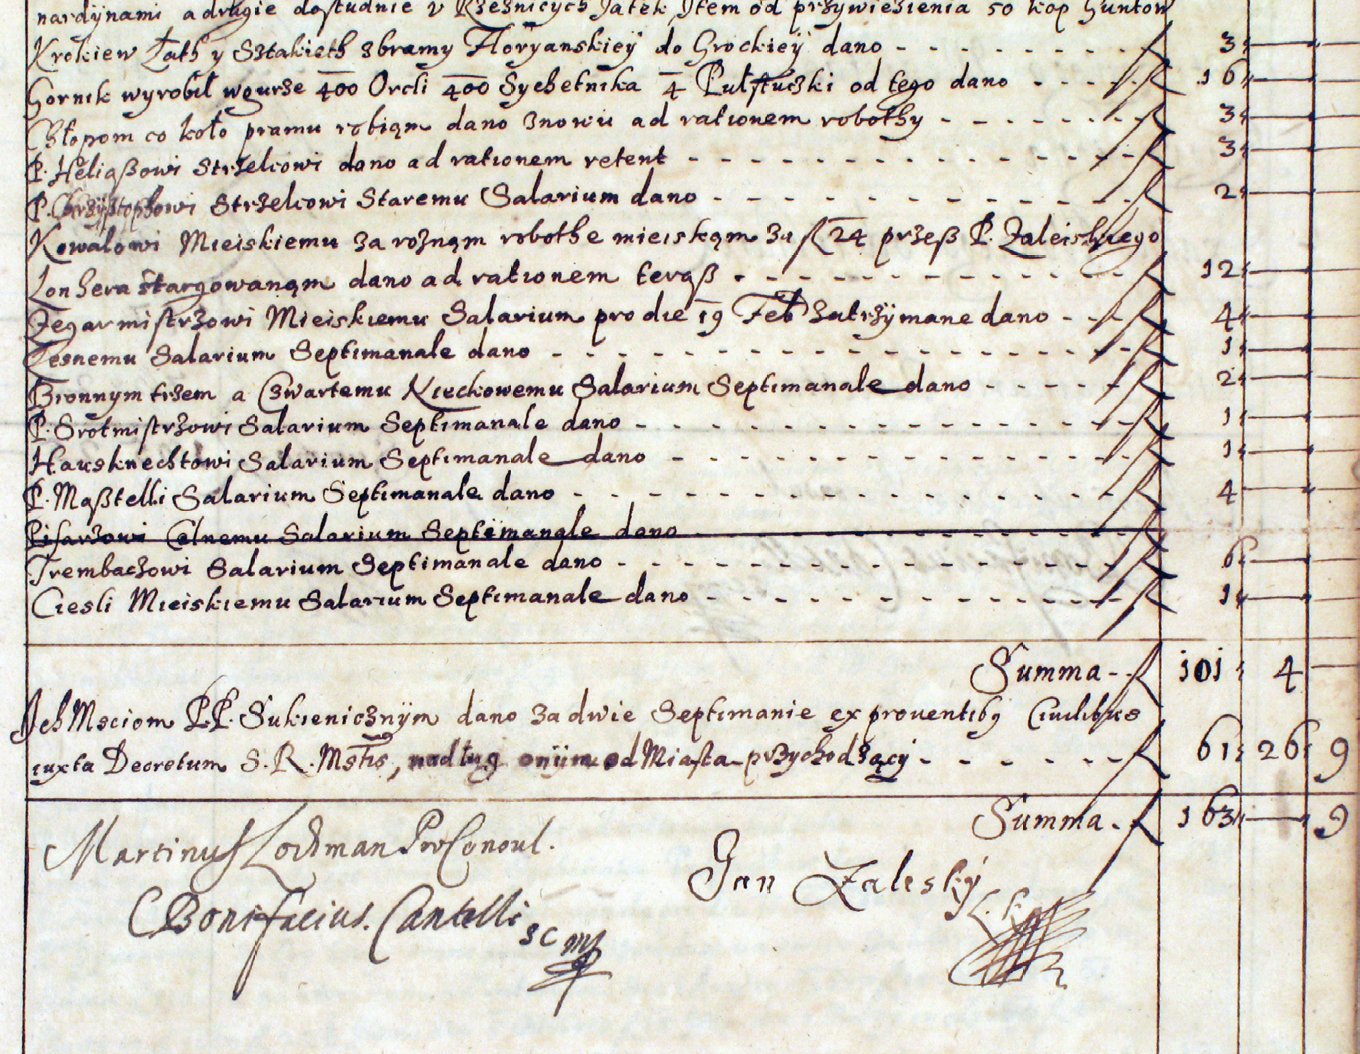 nardynami a drugie dostudnie v Rzeznicych Jatek Item od przywiezienia 50 kop Guntow
Krokiew Łath y Sztakieth zbramy Floryanskiey do Grockiey dano 3
Gornik wyrobił wgurze 400 Orcli 400 Sychetnika 4 Pułtuczki od tego dano 16
Chłopom co koło pramu robiąm dano znowu ad rationem robothy 3
P. Heliaßowi Strzelcowi dano ad rationem retent 3
P. Chrzysztophowi Strzelcowi Staremu Salarium dano 2
Kowalowi Mieiskiemu za rożnąm robothe mieiskąm za fl 24 przeß P. Zaleiskiego
Lonhera starqowanąm dano ad rationem teraß 12
Zegarmistrzowi Mieiskiemu Salarium pro die 19 Feb Zatrzymane dano 4
Lesnemu Salarium Septimanale dano 1
Bronnym trzem a Czwartemu Kieckowemu Salarium Septimanale dano 2
P. Srotmistrzowi Salarium Septimanale dano 1
Hausknechtowi Salarium Septimanale dano 1
P. Maßtelli Salarium Septimanale dano 4
Pisarzowi Celnemu Salarium Septimanale dano
Trembaczowi Salarium Septimanale dano 6
Ciesli Mieiskiemu Salarium Septimanale dano 1
Summa 101 4
Ich Msciom PP. Sukienicznym dano za dwie Septimanie ex proventibq Civilibus
iuxta Decretum S. R. Mstis, onym od Miasta przychodzący 61 26 9
Summa 163 9
Martinus Lochman ProConsul.
Jan Zaleski
Bonifacius Cantelli SC mp